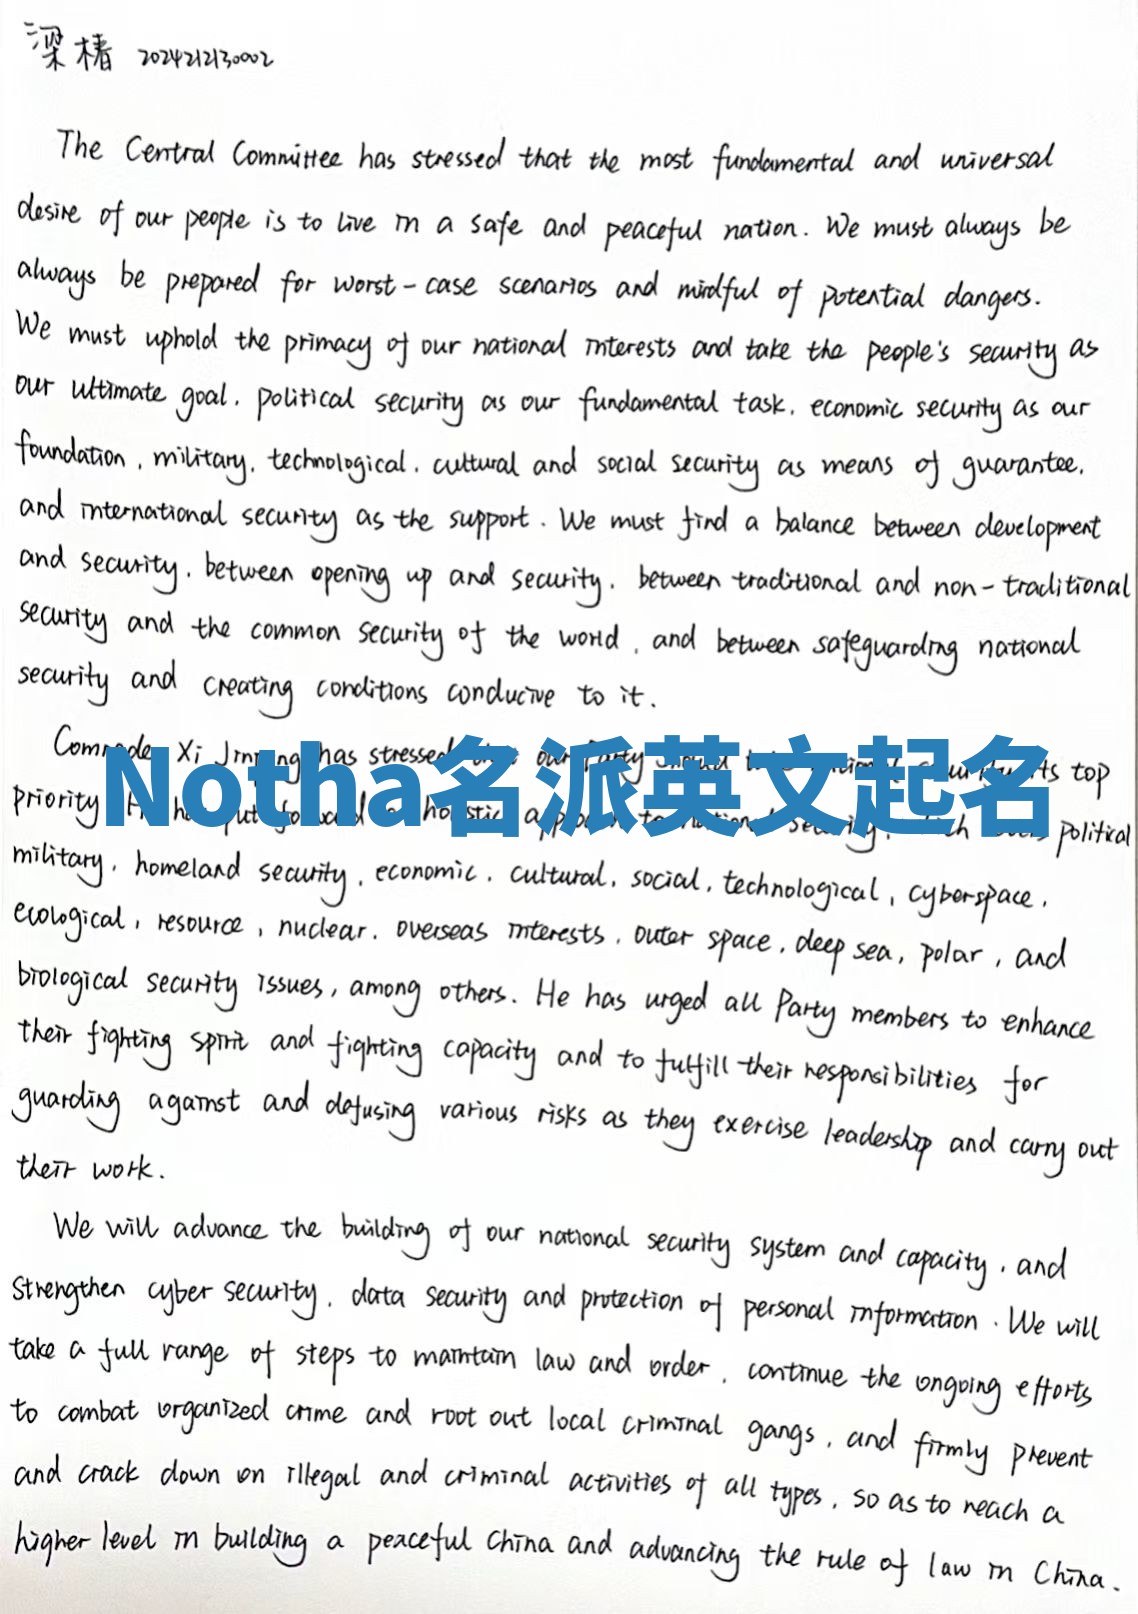 梁椿 2024212130002
The Central Committee has stressed that the most fundamental and universal
desire of our people is to live in a safe and peaceful nation. We must always be
always be prepared for worst-case scenarios and mindful of potential dangers.
We must uphold the primacy of our national interests and take the people's security as
our ultimate goal, political security as our fundamental task, economic security as our
foundation, military, technological, cultural and social security as means of guarantee,
and international security as the support. We must find a balance between development
and security, between opening up and security, between traditional and non-traditional
security and the common security of the world, and between safeguarding national
security and creating conditions conducive to it.
Comrade Xi Jinping has stressed our Party should top
priority put holistic to national security, political
Notha名派英文起名
military, homeland security, economic, cultural, social, technological, cyberspace,
ecological, resource, nuclear, overseas interests, outer space, deep sea, polar, and
biological security issues, among others. He has urged all Party members to enhance
their fighting spirit and fighting capacity and to fulfill their responsibilities for
guarding against and defusing various risks as they exercise leadership and carry out
their work.
We will advance the building of our national security system and capacity, and
strengthen cyber security, data security and protection of personal information. We will
take a full range of steps to maintain law and order, continue the ongoing efforts
to combat organized crime and root out local criminal gangs, and firmly prevent
and crack down on illegal and criminal activities of all types, so as to reach a
higher level in building a peaceful China and advancing the rule of law in China.